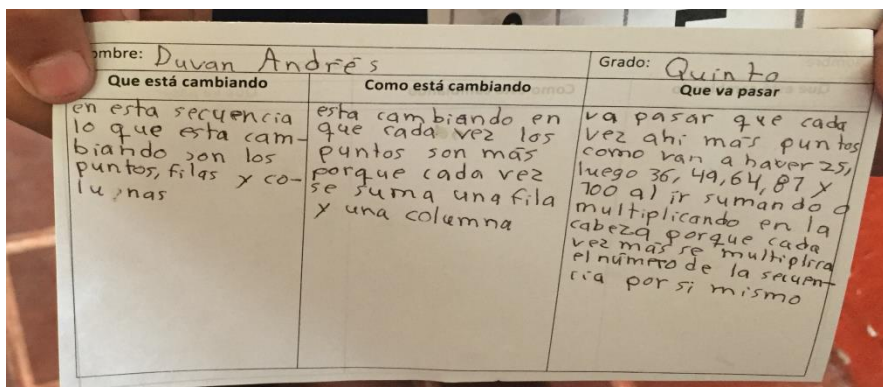 ombre: Duvan Andrés
Grado: Quinto
Que está cambiando
en esta secuencia
lo que esta cam-
biando son los
puntos, filas y co-
lumnas
Como está cambiando
esta cambiando en
que cada vez los
puntos son más
porque cada vez
se suma una fila
y una columna
Que va pasar
va pasar que cada
vez ahi más puntos
como van a haver 25,
luego 36, 49, 64, 81 y
100 al ir sumando o
multiplicando en la
cabeza porque cada
vez más se multiplica
el número de la secuen-
cia por si mismo